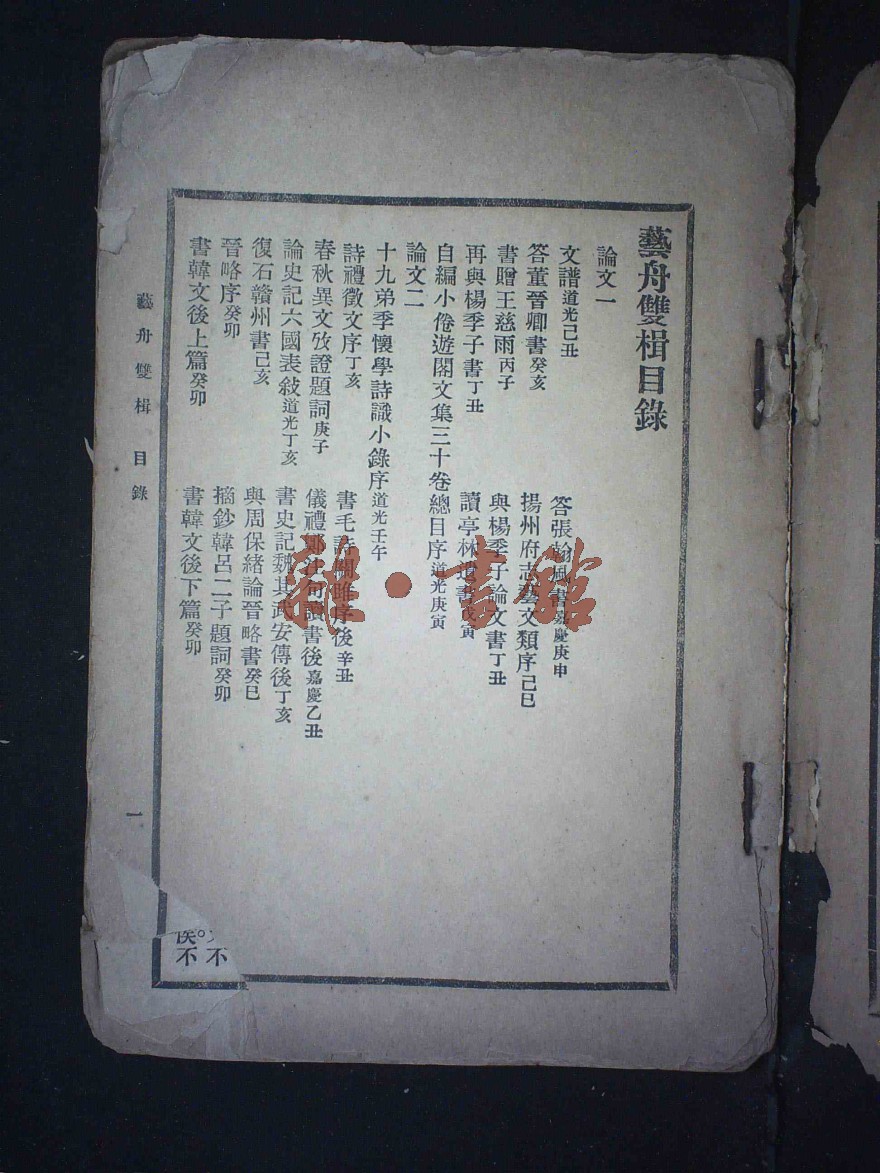 藝舟雙楫目錄
論文一
文譜道光己丑
答張翰風書嘉慶庚申
答董晉卿書癸亥
揚州府志藝文類序己巳
書贈王慈雨丙子
與楊季子論文書丁丑
再與楊季子書丁丑
讀亭林遺書戊寅
自編小倦遊閣文集三十卷總目序道光庚寅
論文二
十九弟季懷學詩識小錄序道光壬午
詩禮徵文序丁亥
書毛詩關雎序後辛丑
春秋異文攷證題詞庚子
儀禮鄭注句讀書後嘉慶乙丑
論史記六國表敍道光丁亥
書史記魏其武安傳後丁亥
復石贛州書己亥
與周保緒論晉略書癸巳
晉略序癸卯
摘鈔韓呂二子題詞癸卯
書韓文後上篇癸卯
書韓文後下篇癸卯
藝舟雙楫 目錄
一
不
不
雜·書館